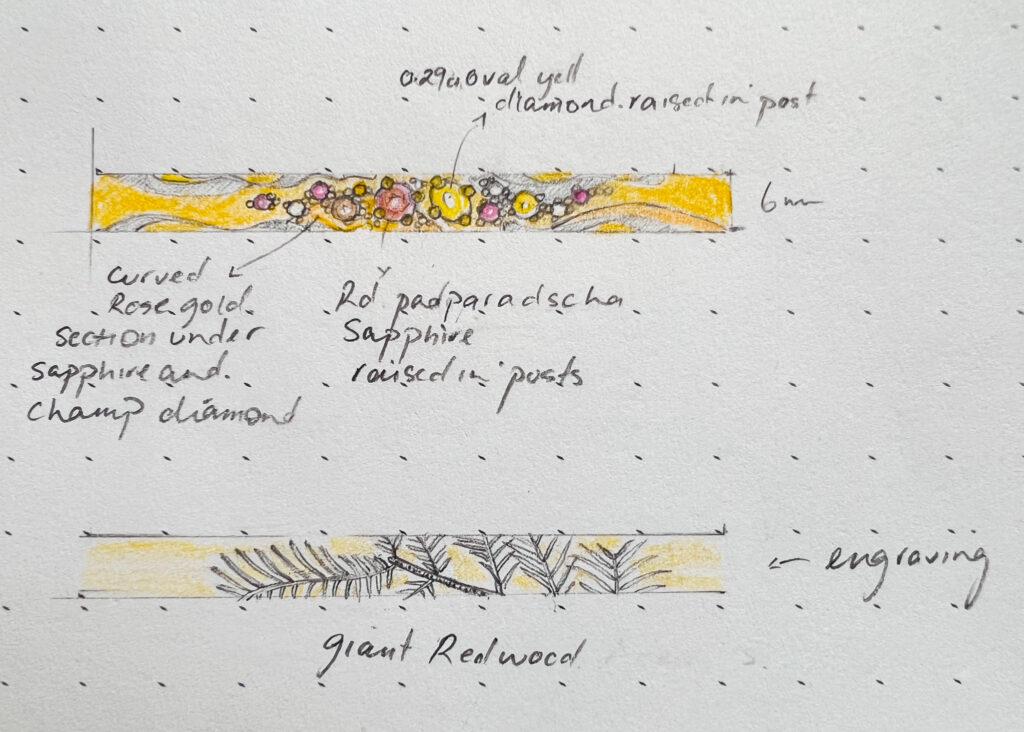 0.29ct oval yell
diamond. raised in post
6mm
curved
Rose gold.
section under
sapphire and.
champ diamond
Rd padparadscha
Sapphire
raised in posts
← engraving
giant Redwood